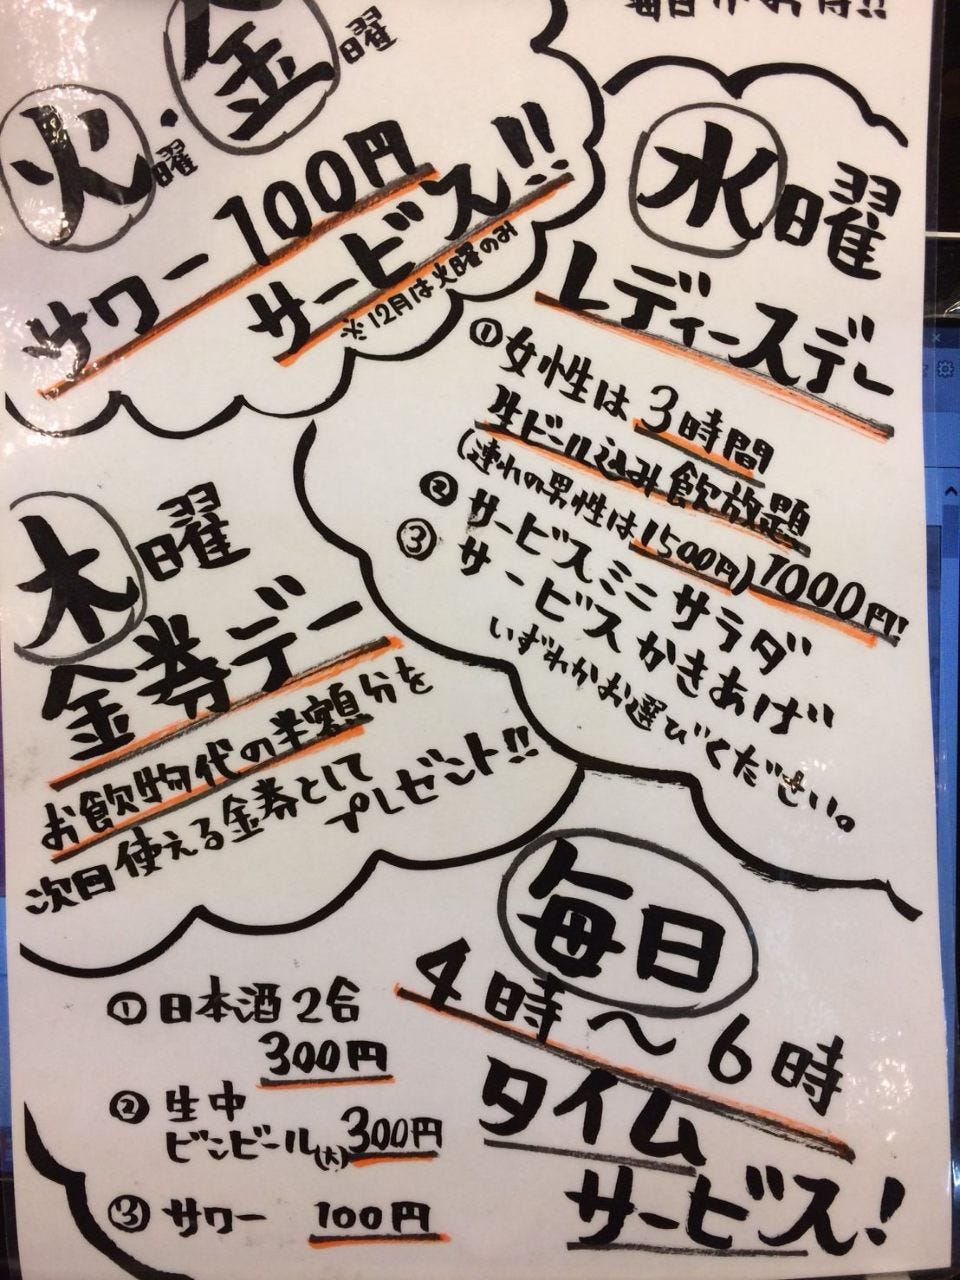 火曜・金曜
サワー100円
サービス!!
※12月は火曜のみ
水曜
レディースデー
①女性は3時間
生ビール込み飲放題
1000円!!
(連れの男性は1500円)
②サービスミニサラダ
③サービスかきあげ
いずれかお選びください。
木曜
金券デー
お飲物代の半額分を
次回使える金券として
プレゼント!!
毎日
4時～6時
タイム
サービス!
①日本酒2合
300円
②生中
ビンビール(大)300円
③サワー 100円